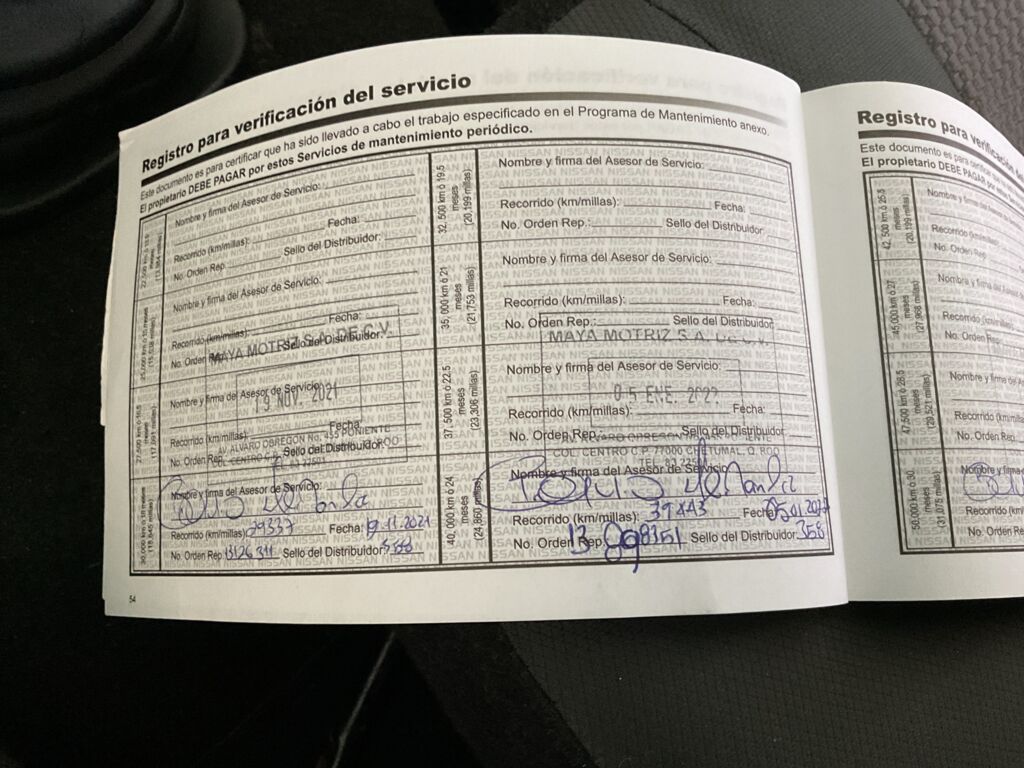 Registro para verificación del servicio
Este documento es para certificar que ha sido llevado a cabo el trabajo especificado en el Programa de Mantenimiento anexo.
El propietario DEBE PAGAR por estos Servicios de mantenimiento periódico.
Nombre y firma del Asesor de Servicio:
Recorrido (km/millas): Fecha:
No. Orden Rep. Sello del Distribuidor:
Nombre y firma del Asesor de Servicio:
Recorrido (km/millas): Fecha:
No. Orden Rep. Sello del Distribuidor:
MAYA MOTRIZ S.A. DE C.V.
Nombre y firma del Asesor de Servicio:
19 NOV. 2021
Recorrido (km/millas): Fecha:
No. Orden Rep. Sello del Distribuidor:
AV. ALVARO OBREGON No. PONIENTE
COL. CENTRO C.P.
30,000 km ó 18 meses
Nombre y firma del Asesor de Servicio:
Recorrido (km/millas): 29337 Fecha: 19.11.2021
No. Orden Rep. Sello del Distribuidor: 358
32,500 km ó 19.5 meses (20,199 millas)
Nombre y firma del Asesor de Servicio:
Recorrido (km/millas): Fecha:
No. Orden Rep.: Sello del Distribuidor
35,000 km ó 21 meses (21,753 millas)
Nombre y firma del Asesor de Servicio:
Recorrido (km/millas): Fecha:
No. Orden Rep.: Sello del Distribuidor
MAYA MOTRIZ S.A. DE C.V.
37,500 km ó 22.5 meses (23,306 millas)
Nombre y firma del Asesor de Servicio:
05 ENE. 2022
Recorrido (km/millas): Fecha:
No. Orden Rep. Sello del Distribuidor:
COL. CENTRO C.P. 77000 CHETUMAL, Q. ROO
40,000 km ó 24 meses (24,860 millas)
Nombre y firma del Asesor de Servicio
Recorrido (km/millas): 39443 Fecha: 05.01.2022
No. Orden Rep. Sello del Distribuidor: 358
54
Registro para
Este documento es para certificar
El propietario DEBE PAGAR por estos
42,500 km ó 25.5 meses
Nombre y firma del
Recorrido (km/millas)
No. Orden
45,000 km ó 27 meses (27,968 millas)
Nombre y firma del
Recorrido (km/mill
No. Orden Re
47,500 km ó 28.5 meses (29,521 millas)
Nombre y firma de
Recorrido (km/m
No. Orden Re
50,000 km ó 30 meses
Nombre y firma
Recorrido (km/
No. Orden Re